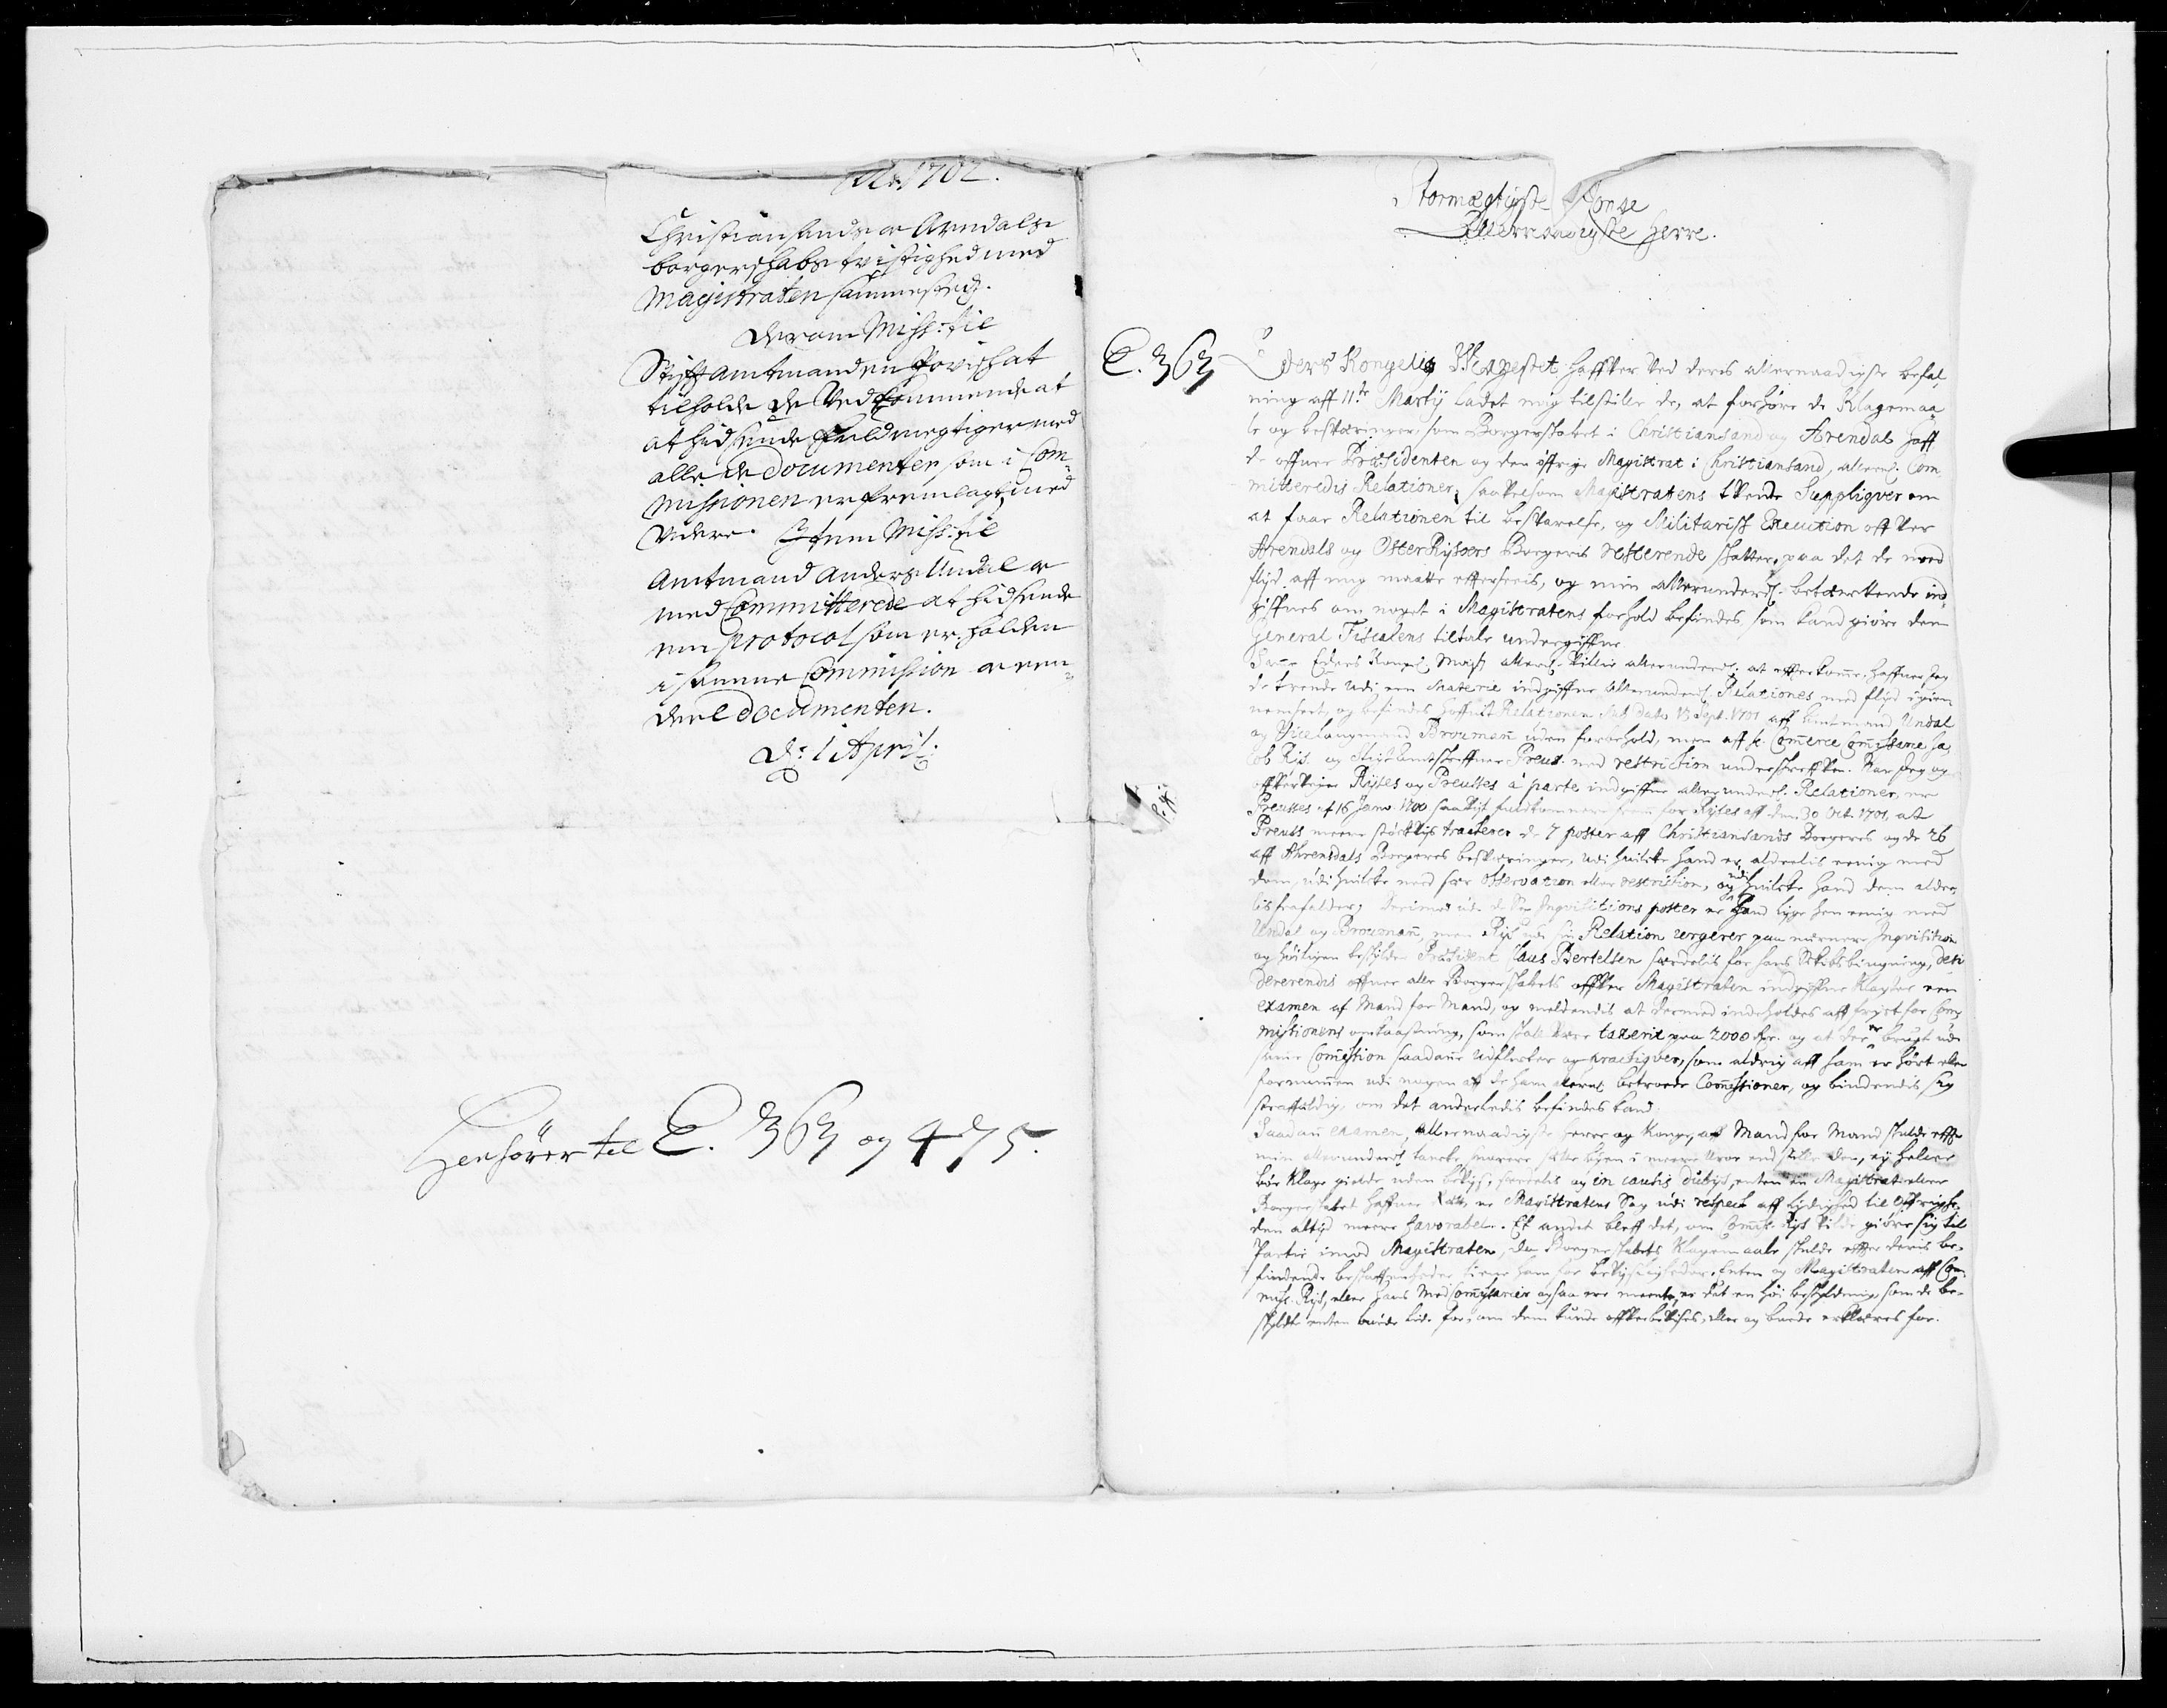 1702.
Christiansands oc Arndals
borgerskabs tvistighed med
Magistraten sammesteds.
Derom Miss: til
Stifftamtmanden Povisk at
tilholde de Vedkommende at
at hidsende fuldmegtiger med
alle de Documenter som i Com¬
missionen er fremlagt med
videre. Item Miss: til
Amtmand Anders Undal oc
med Committerede at hidsende
een protocol som er holden
i samme Commission oc een
deel documenten.
D: 1 April.
Henhører til E. 363 og 475.
Stormægtigste Konge
Allernaadigste Herre.
E. 363
Eders Kongelig Mayestet haffver ved deris allernaadigste befal¬
ning aff 11te Martij ladet mig tilstille de, at forhøre de Klagemaa¬
le og besværinger som Borgerskabet i Christiansand og Arendal haff
de offver Præsidenten og den øffrige Magistrat i Christiansand, allern. Com¬
mitteredis Relationer, saavelsom Magistratens tvende Suppliqver om
at faae Relationen til besvarelse, og Militarisk Execution offver
Arendals og OsterRiisøers Borgeris resterende skatter, paa det de med
flijd aff mig maatte efftersees, og min allerunderd. betænkende ind¬
giffves om noget i Magistratens forhold befindes som kand giøre dem
General Fiscalens tiltale undergiffne.
Samme Eders Kongl. Mayts allern. villie allerunderd. at efterkomme, haffver jeg
de trende udi een Materie indgiffne allerunderd. Relationes med flijd igien¬
nemseet, og befindes første Relationen sub dato 13 Sept. 1701 aff Amtmand Undal
og Vicelaugmand Broumann uden forbehold, men aff k. Commerce Commissarie Ja¬
cob Rijs og Stigtamtskriffver Preus med restriction underskreffven. Naar jeg og
offverveyer Riises og Preusses à parte indgiffne allerunderd. Relationer, er
Preusses af 16 Janv. 1700 saavist fuldkommere frem for Rijses aff den 30 Oct. 1701, at
Preuss meere støckvijs tracterer de 7 poster aff Christiansands Borgeres og de 26
aff Ahrendals Borgeres besværinger, udi hvilcke hand er aldeelis eenig med
dem, udi hvilcke med sær observation eller restriction, og udi hvilcke hand dem aldee¬
lis frafalder; Derimod udi de Inqvisitions poster er hand lige hen eenig med
Undal og Broumann, men Rijs udi sin Relation urgerer paa nærmere Inqvisition
og høiligen beskylder Præsident Claus Bertelsen særdelis for hans Skibsbiugning, desi
dererendis offver alle Borgerskabets offver Magistraten indgiffne Klager een
examen af Mand for Mand, og meldendis at dermed indeholdes aff frygt for Com¬
missionens omkaastning, som skal være taxerit paa 2000 Rdr. og at der er brugt udi
samme Commission saadanne Udflucter og practiqver, som aldrig aff ham er hørt eller
fornummen udi nogen af de ham allern. betroede Commissioner, og bindendis sig
straffuldig, om det anderledis befindes kand.
Saadan examen, Allernaadigste Herre og Konge, af Mand for Mand skulde effter
min allerunderd. tancke snarere sætte bijen i meere Uroe end stille den, ej heller
bør Klage gielde uden bevijs, særdelis og in causis dubijs, enten en Magistrat eller
Borgerskabet haffver Ræt, er Magistratens Sag udi respect aff lydighed til Øffrighe¬
den altijd meere favorabel. Et andet bleff det, om Commiss. Rijs vilde giøre sig til
Partie imod Magistraten, da Borgerskabets Klagemaale skulde effter deris be¬
findende beskaffenheder tiene ham for bevijsligheder. Enten og Magistraten aff Com¬
miss. Rijs, eller hans MedCommissarier ogsaa ere meente, er det en høi beskyldning, som de be¬
skyldte enten burde lide for, om dem kunde offverbevises, eller og burde erklæres for.